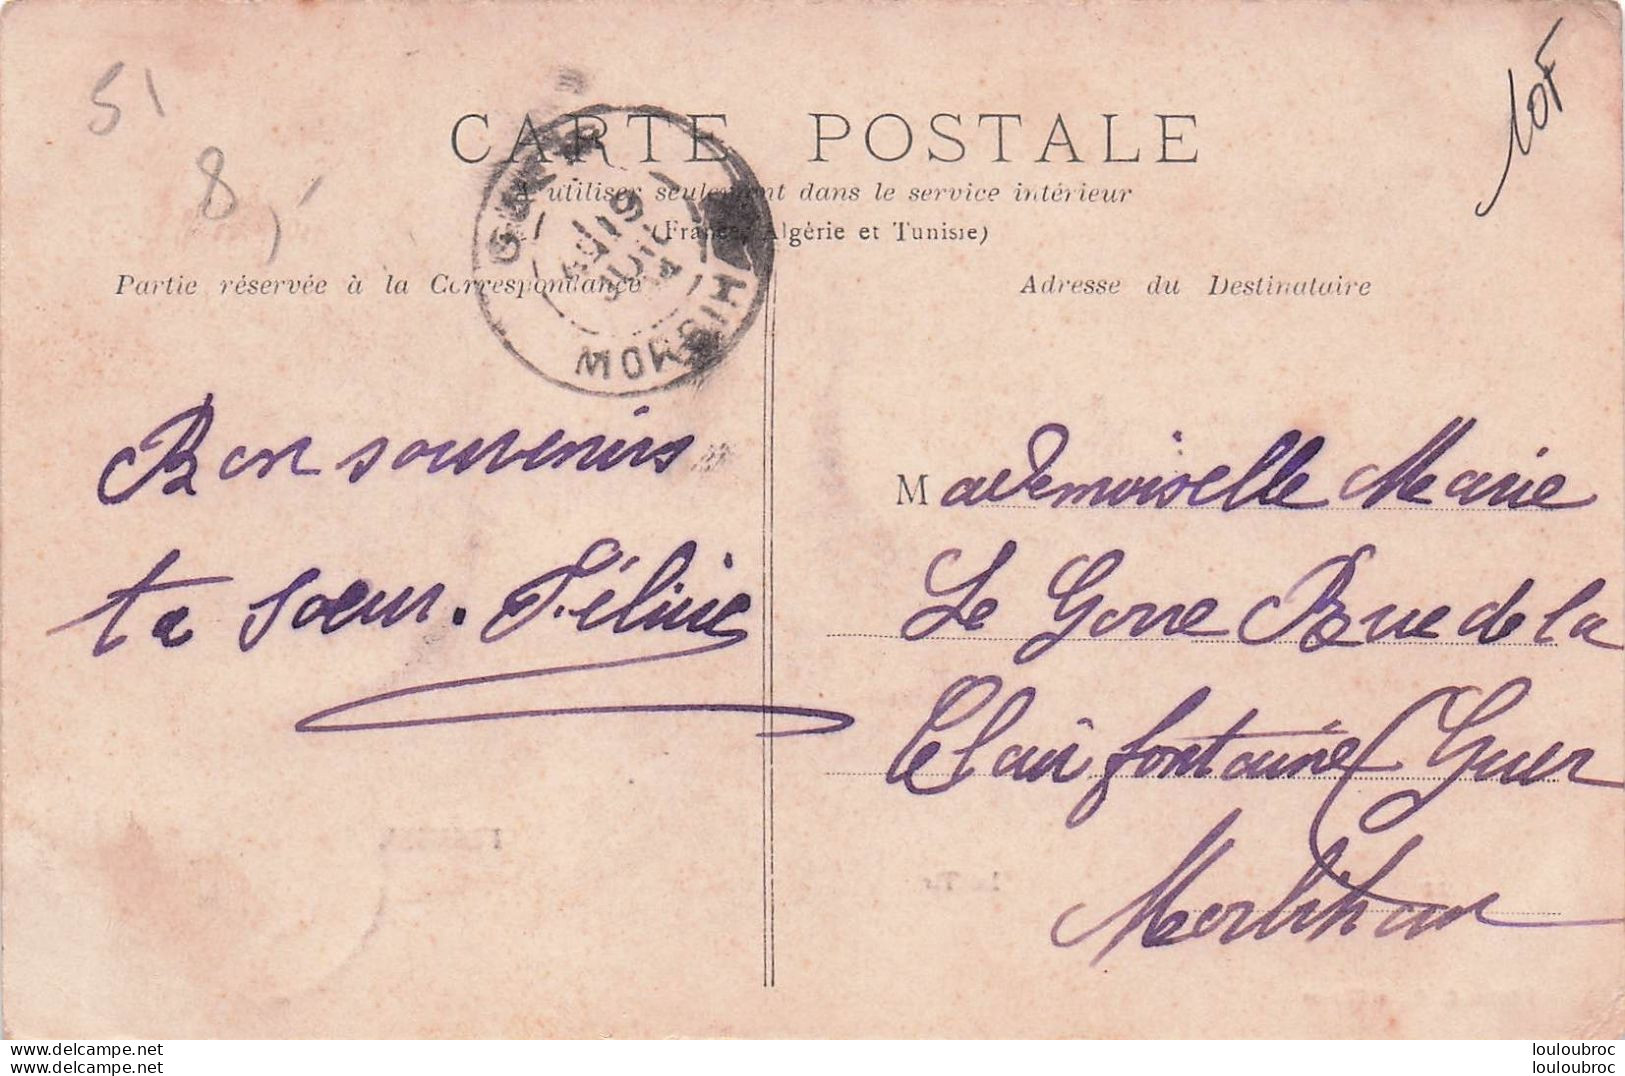 51
8,-
10F
CARTE POSTALE
A utiliser seulement dans le service intérieur
(France, Algérie et Tunisie)
Partie réservée à la Correspondance
Adresse du Destinataire
GUER
MORBIHAN
Bon souvenirs
ta soeur. Féline
Mademoiselle Marie
Le Gorre Rue de la
Clair fontaine Guer
Morbihan
louloubroc
louloubroc
www.delcampe.net
www.delcampe.net